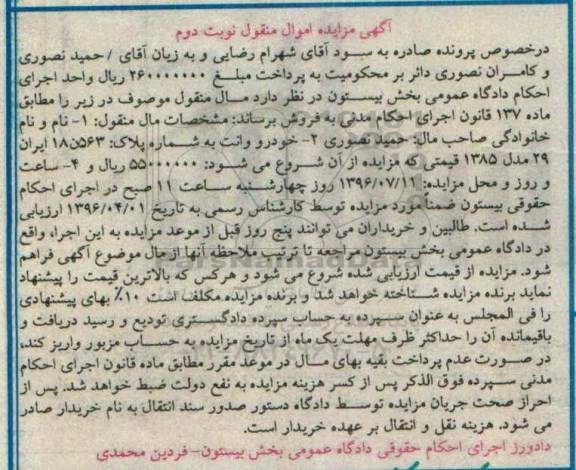 آگهی مزایده اموال منقول نوبت دوم
درخصوص پرونده صادره به سود آقای شهرام رضایی و به زیان آقای / حمید نصوری
و کامران نصوری دائر بر محکومیت به پرداخت مبلغ ۲۶۰۰۰۰۰۰۰ ریال واحد اجرای
احکام دادگاه عمومی بخش بیستون در نظر دارد مال منقول موصوف در زیر را مطابق
ماده ۱۳۷ قانون اجرای احکام مدنی به فروش برساند: مشخصات مال منقول: ۱- نام و نام
خانوادگی صاحب مال: حمید نصوری ۲- خودرو وانت به شماره پلاک: ۵۶۳ن۱۸ ایران
۲۹ مدل ۱۳۸۵ قیمتی که مزایده از آن شروع می شود: ۵۵۰۰۰۰۰۰ ریال و ۴- ساعت
و روز و محل مزایده: ۱۳۹۶/۰۷/۱۱ روز چهارشنبه ساعت ۱۱ صبح در اجرای احکام
حقوقی بیستون ضمناً مورد مزایده توسط کارشناس رسمی به تاریخ ۱۳۹۶/۰۴/۰۱ ارزیابی
شده است. طالبین و خریداران می توانند پنج روز قبل از موعد مزایده به این اجراء واقع
در دادگاه عمومی بخش بیستون مراجعه تا ترتیب ملاحظه آنها از مال موضوع آگهی فراهم
شود. مزایده از قیمت ارزیابی شده شروع می شود و هرکس که بالاترین قیمت را پیشنهاد
نماید برنده مزایده شناخته خواهد شد و برنده مزایده مکلف است ۱۰٪ بهای پیشنهادی
را فی المجلس به عنوان سپرده به حساب سپرده دادگستری تودیع و رسید دریافت و
باقیمانده آن را حداکثر ظرف مهلت یک ماه از تاریخ مزایده به حساب مزبور واریز کند،
در صورت عدم پرداخت بقیه بهای مال در موعد مقرر مطابق ماده قانون اجرای احکام
مدنی سپرده فوق الذکر پس از کسر هزینه مزایده به نفع دولت ضبط خواهد شد. پس از
احراز صحت جریان مزایده توسط دادگاه دستور صدور سند انتقال به نام خریدار صادر
می شود. هزینه نقل و انتقال بر عهده خریدار است.
دادورز اجرای احکام حقوقی دادگاه عمومی بخش بیستون- فردین محمدی